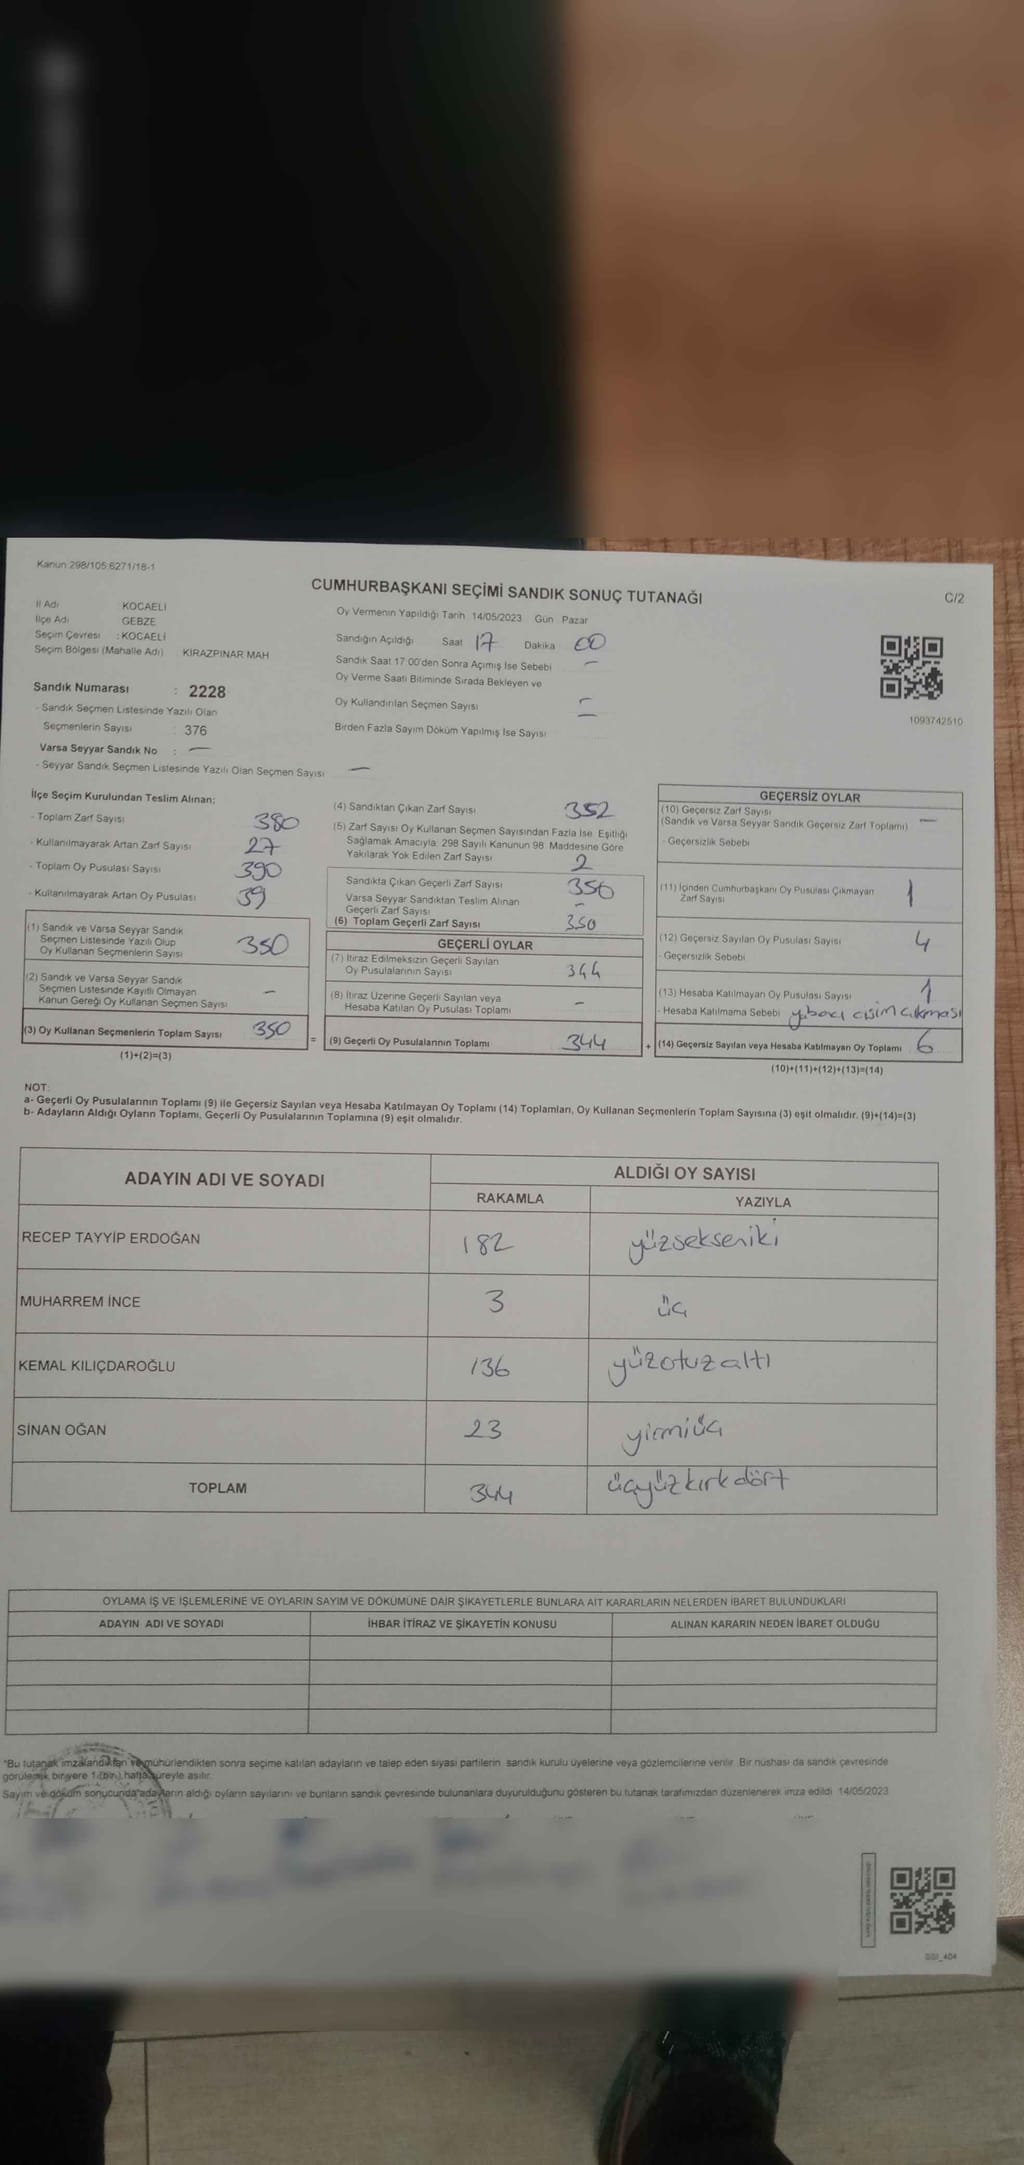 Kanun 298/105 6271/18-1
CUMHURBAŞKANI SEÇİMİ SANDIK SONUÇ TUTANAĞI
C/2
İl Adı KOCAELİ
İlçe Adı GEBZE
Seçim Çevresi : KOCAELİ
Seçim Bölgesi (Mahalle Adı) KİRAZPINAR MAH
Sandık Numarası : 2228
- Sandık Seçmen Listesinde Yazılı Olan
Seçmenlerin Sayısı : 376
Varsa Seyyar Sandık No : —
- Seyyar Sandık Seçmen Listesinde Yazılı Olan Seçmen Sayısı —
Oy Vermenin Yapıldığı Tarih 14/05/2023 Gün Pazar
Sandığın Açıldığı Saat 17 Dakika 00
Sandık Saat 17:00'den Sonra Açımış İse Sebebi —
Oy Verme Saati Bitiminde Sırada Bekleyen ve
Oy Kullandırılan Seçmen Sayısı —
Birden Fazla Sayım Döküm Yapılmış İse Sayısı —
1093742510
İlçe Seçim Kurulundan Teslim Alınan;
- Toplam Zarf Sayısı 380
- Kullanılmayarak Artan Zarf Sayısı 27
- Toplam Oy Pusulası Sayısı 390
- Kullanılmayarak Artan Oy Pusulası 39
(1) Sandık ve Varsa Seyyar Sandık
Seçmen Listesinde Yazılı Olup
Oy Kullanan Seçmenlerin Sayısı 350
(2) Sandık ve Varsa Seyyar Sandık
Seçmen Listesinde Kayıtlı Olmayan
Kanun Gereği Oy Kullanan Seçmen Sayısı —
(3) Oy Kullanan Seçmenlerin Toplam Sayısı 350
(1)+(2)=(3)
(4) Sandıktan Çıkan Zarf Sayısı 352
(5) Zarf Sayısı Oy Kullanan Seçmen Sayısından Fazla İse Eşitliği
Sağlamak Amacıyla; 298 Sayılı Kanunun 98. Maddesine Göre
Yakılarak Yok Edilen Zarf Sayısı 2
Sandıkta Çıkan Geçerli Zarf Sayısı 350
Varsa Seyyar Sandıktan Teslim Alınan
Geçerli Zarf Sayısı —
(6) Toplam Geçerli Zarf Sayısı 350
GEÇERLİ OYLAR
(7) İtiraz Edilmeksizin Geçerli Sayılan
Oy Pusulalarının Sayısı 344
(8) İtiraz Üzerine Geçerli Sayılan veya
Hesaba Katılan Oy Pusulası Toplamı —
= (9) Geçerli Oy Pusulalarının Toplamı 344
GEÇERSİZ OYLAR
(10) Geçersiz Zarf Sayısı
(Sandık ve Varsa Seyyar Sandık Geçersiz Zarf Toplamı) —
- Geçersizlik Sebebi
(11) İçinden Cumhurbaşkanı Oy Pusulası Çıkmayan
Zarf Sayısı 1
(12) Geçersiz Sayılan Oy Pusulası Sayısı 4
- Geçersizlik Sebebi
(13) Hesaba Katılmayan Oy Pusulası Sayısı 1
- Hesaba Katılmama Sebebi yabancı cisim çıkması
+ (14) Geçersiz Sayılan veya Hesaba Katılmayan Oy Toplamı 6
(10)+(11)+(12)+(13)=(14)
NOT:
a- Geçerli Oy Pusulalarının Toplamı (9) ile Geçersiz Sayılan veya Hesaba Katılmayan Oy Toplamı (14) Toplamları, Oy Kullanan Seçmenlerin Toplam Sayısına (3) eşit olmalıdır. (9)+(14)=(3)
b- Adayların Aldığı Oyların Toplamı, Geçerli Oy Pusulalarının Toplamına (9) eşit olmalıdır.
ADAYIN ADI VE SOYADI ALDIĞI OY SAYISI
RAKAMLA YAZIYLA
RECEP TAYYİP ERDOĞAN 182 yüzsekseniki
MUHARREM İNCE 3 üç
KEMAL KILIÇDAROĞLU 136 yüzotuzaltı
SİNAN OĞAN 23 yirmiüç
TOPLAM 344 üçyüzkırkdört
OYLAMA İŞ VE İŞLEMLERİNE VE OYLARIN SAYIM VE DÖKÜMÜNE DAİR ŞİKAYETLERLE BUNLARA AİT KARARLARIN NELERDEN İBARET BULUNDUKLARI
ADAYIN ADI VE SOYADI İHBAR İTİRAZ VE ŞİKAYETİN KONUSU ALINAN KARARIN NEDEN İBARET OLDUĞU
*Bu tutanak imzalandıktan ve mühürlendikten sonra seçime katılan adayların ve talep eden siyasi partilerin sandık kurulu üyelerine veya gözlemcilerine verilir. Bir nüshası da sandık çevresinde
görülecek bir yere 1 (bir) hafta süreyle asılır.
Sayım ve döküm sonucunda adayların aldığı oyların sayılarını ve bunların sandık çevresinde bulunanlara duyurulduğunu gösteren bu tutanak tarafımızdan düzenlenerek imza edildi. 14/05/2023
SSI_404